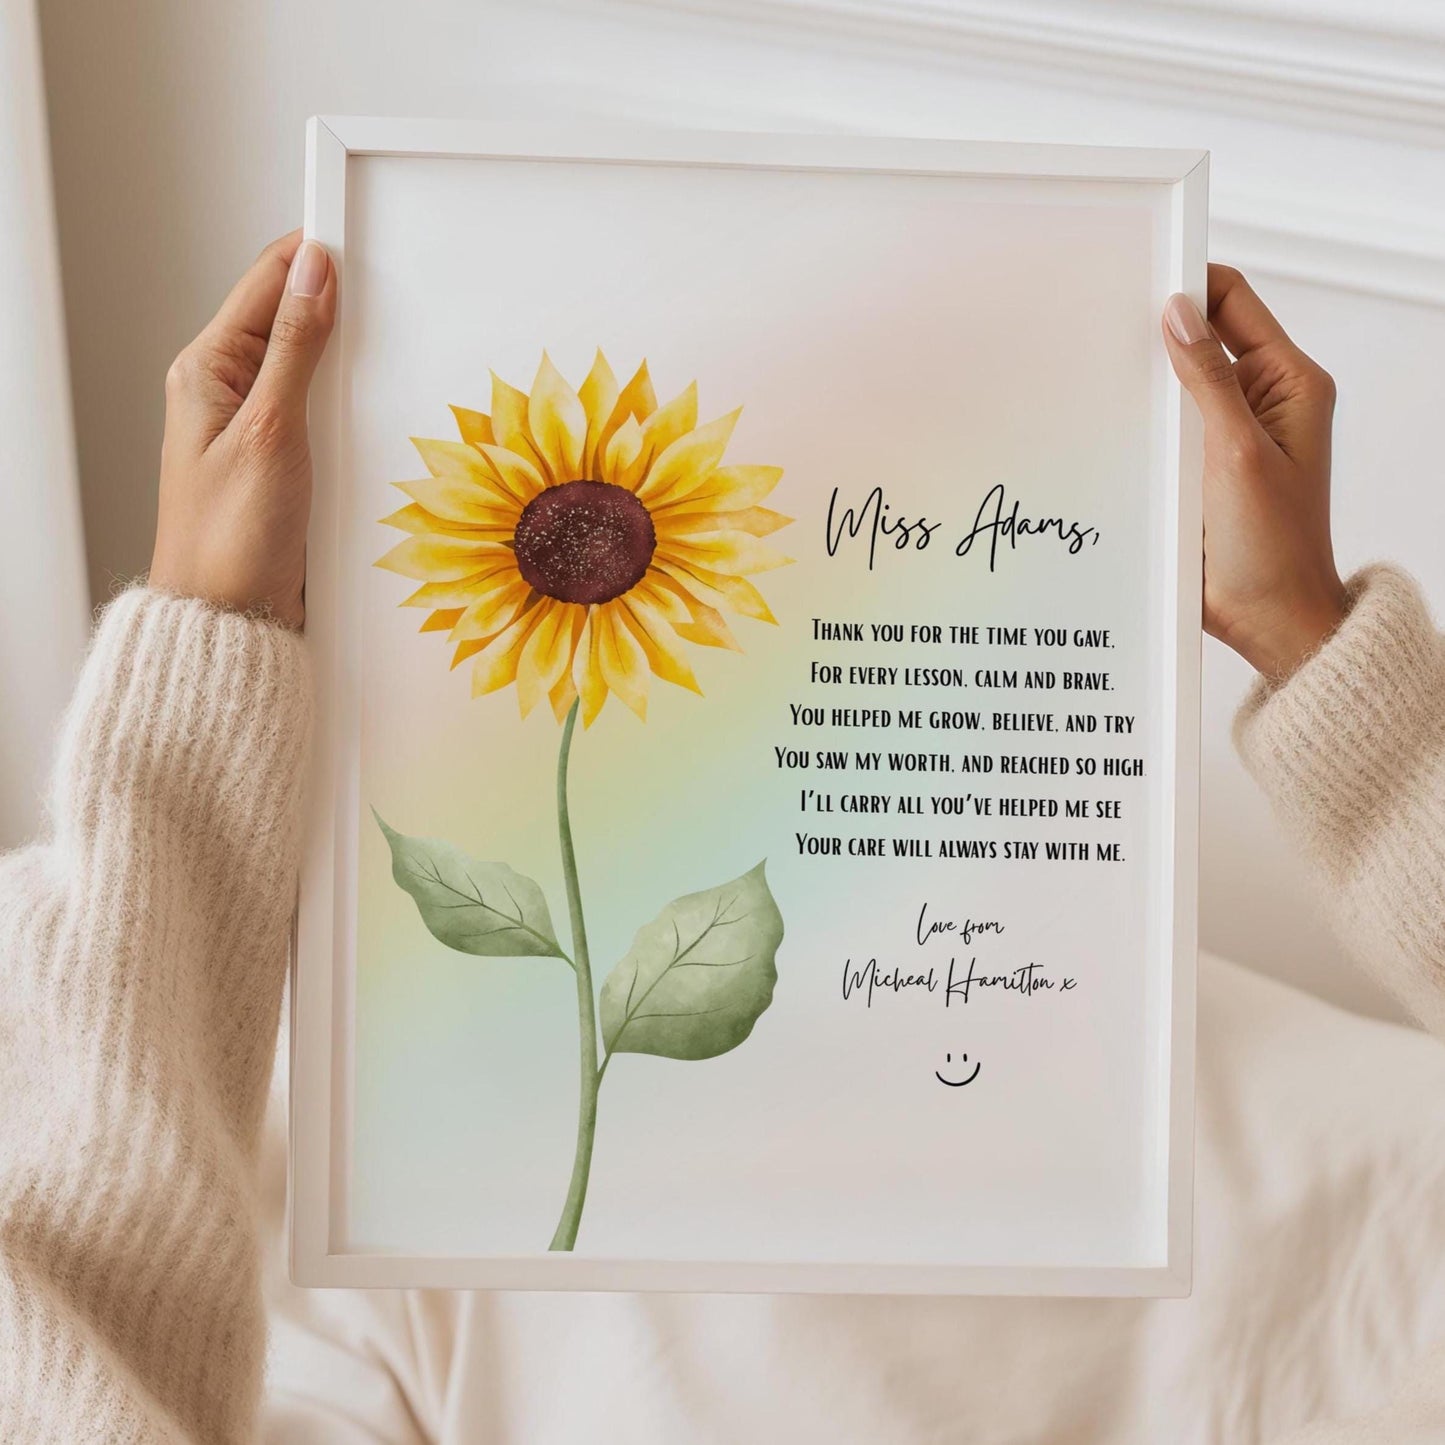 Miss Adams,
Thank you for the time you gave,
For every lesson, calm and brave.
You helped me grow, believe, and try
You saw my worth, and reached so high.
I'll carry all you've helped me see
Your care will always stay with me.
Love from
Micheal Hamilton x